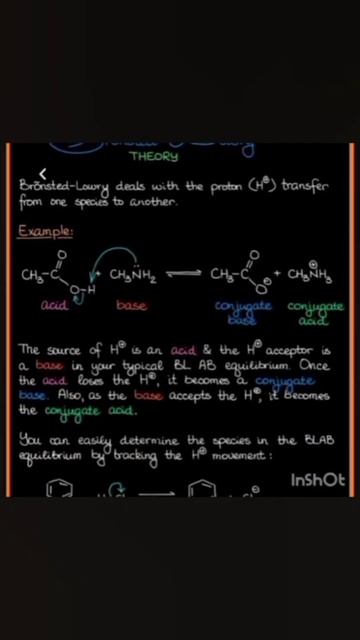 THEORY
Brönsted-Lowry deals with the proton (H⊕) transfer
from one species to another.
Example:
CH₃-C O O-H + CH₃N̈H₂ ⇌ CH₃-C O O⊖ + CH₃N⊕H₃
acid base conjugate base conjugate acid
The source of H⊕ is an acid & the H⊕ acceptor is
a base in your typical BL AB equilibrium. Once
the acid loses the H⊕, it becomes a conjugate
base. Also, as the base accepts the H⊕, it becomes
the conjugate acid.
You can easily determine the species in the BLAB
equilibrium by tracking the H⊕ movement:
InShOt